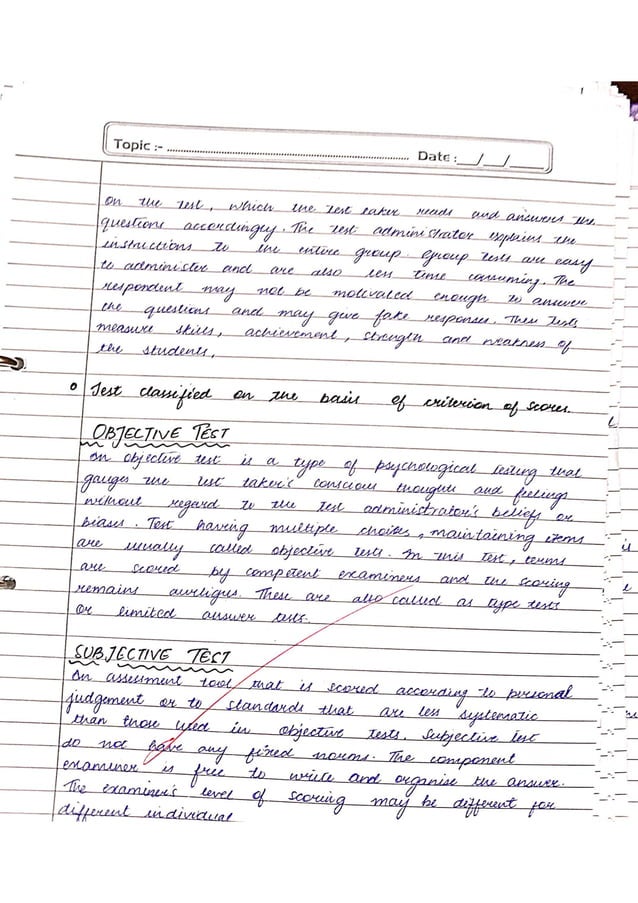 Topic :- ........ Date :__/__/____
on the test, which the test taker reads and answers the
questions accordingly. The test administrator explains the
instructions to the entire group. Group tests are easy
to administer and are also less time consuming. The
respondent may not be motivated enough to answer
the questions and may give fake responses. These tests
measure skills, achievement, strength and weakness of
the students.
Test classified on the basis of criterion of scores.
OBJECTIVE TEST
An objective test is a type of psychological testing that
gauges the test taker's conscious thoughts and feelings
without regard to the test administrator's beliefs or
biases. Test having multiple choices, maintaining items
are usually called objective tests. In this test, terms
are scored by competent examiners and the scoring
remains These are also called as type tests
or limited answer tests.
SUBJECTIVE TEST
An assessment tool that is scored according to personal
judgement or to standards that are less systematic
than those used in objective tests. Subjective test
do not have any fixed norms. The component
examiner is free to write and organise the answer.
The examiner's level of scoring may be different for
different individual